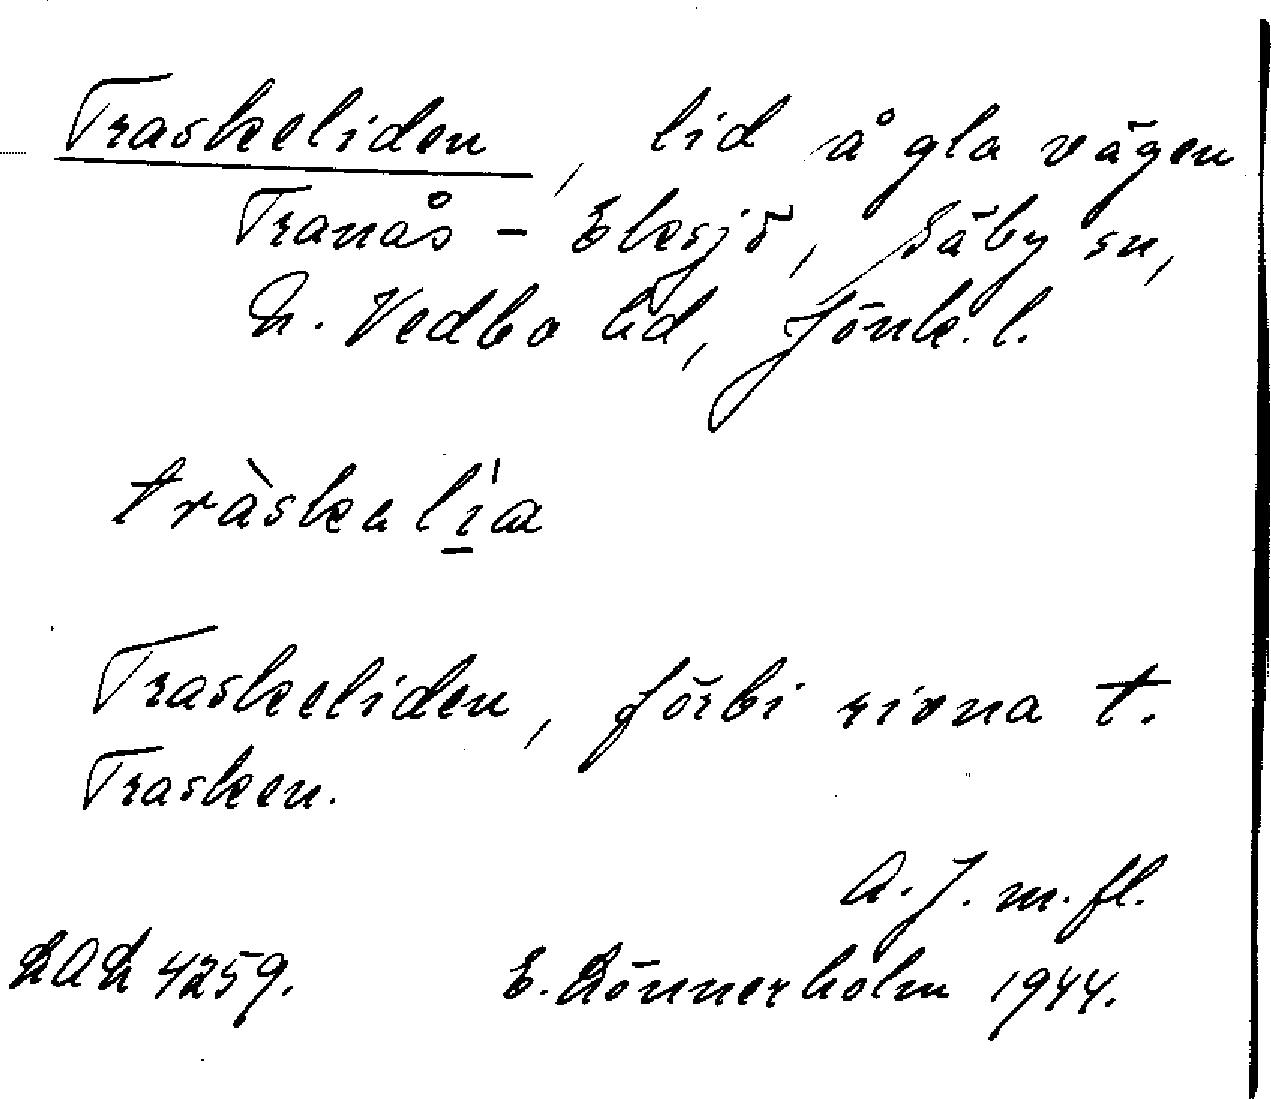 Traskeliden, lid å gla vägen
Tranås - Eksjö, Säby sn,
N. Vedbo hd, Jönk. l.
tràskalia
Traskeliden, förbi rivna t.
Trasken.
A. J. m. fl.
4259. E. Lönnerholm 1944.